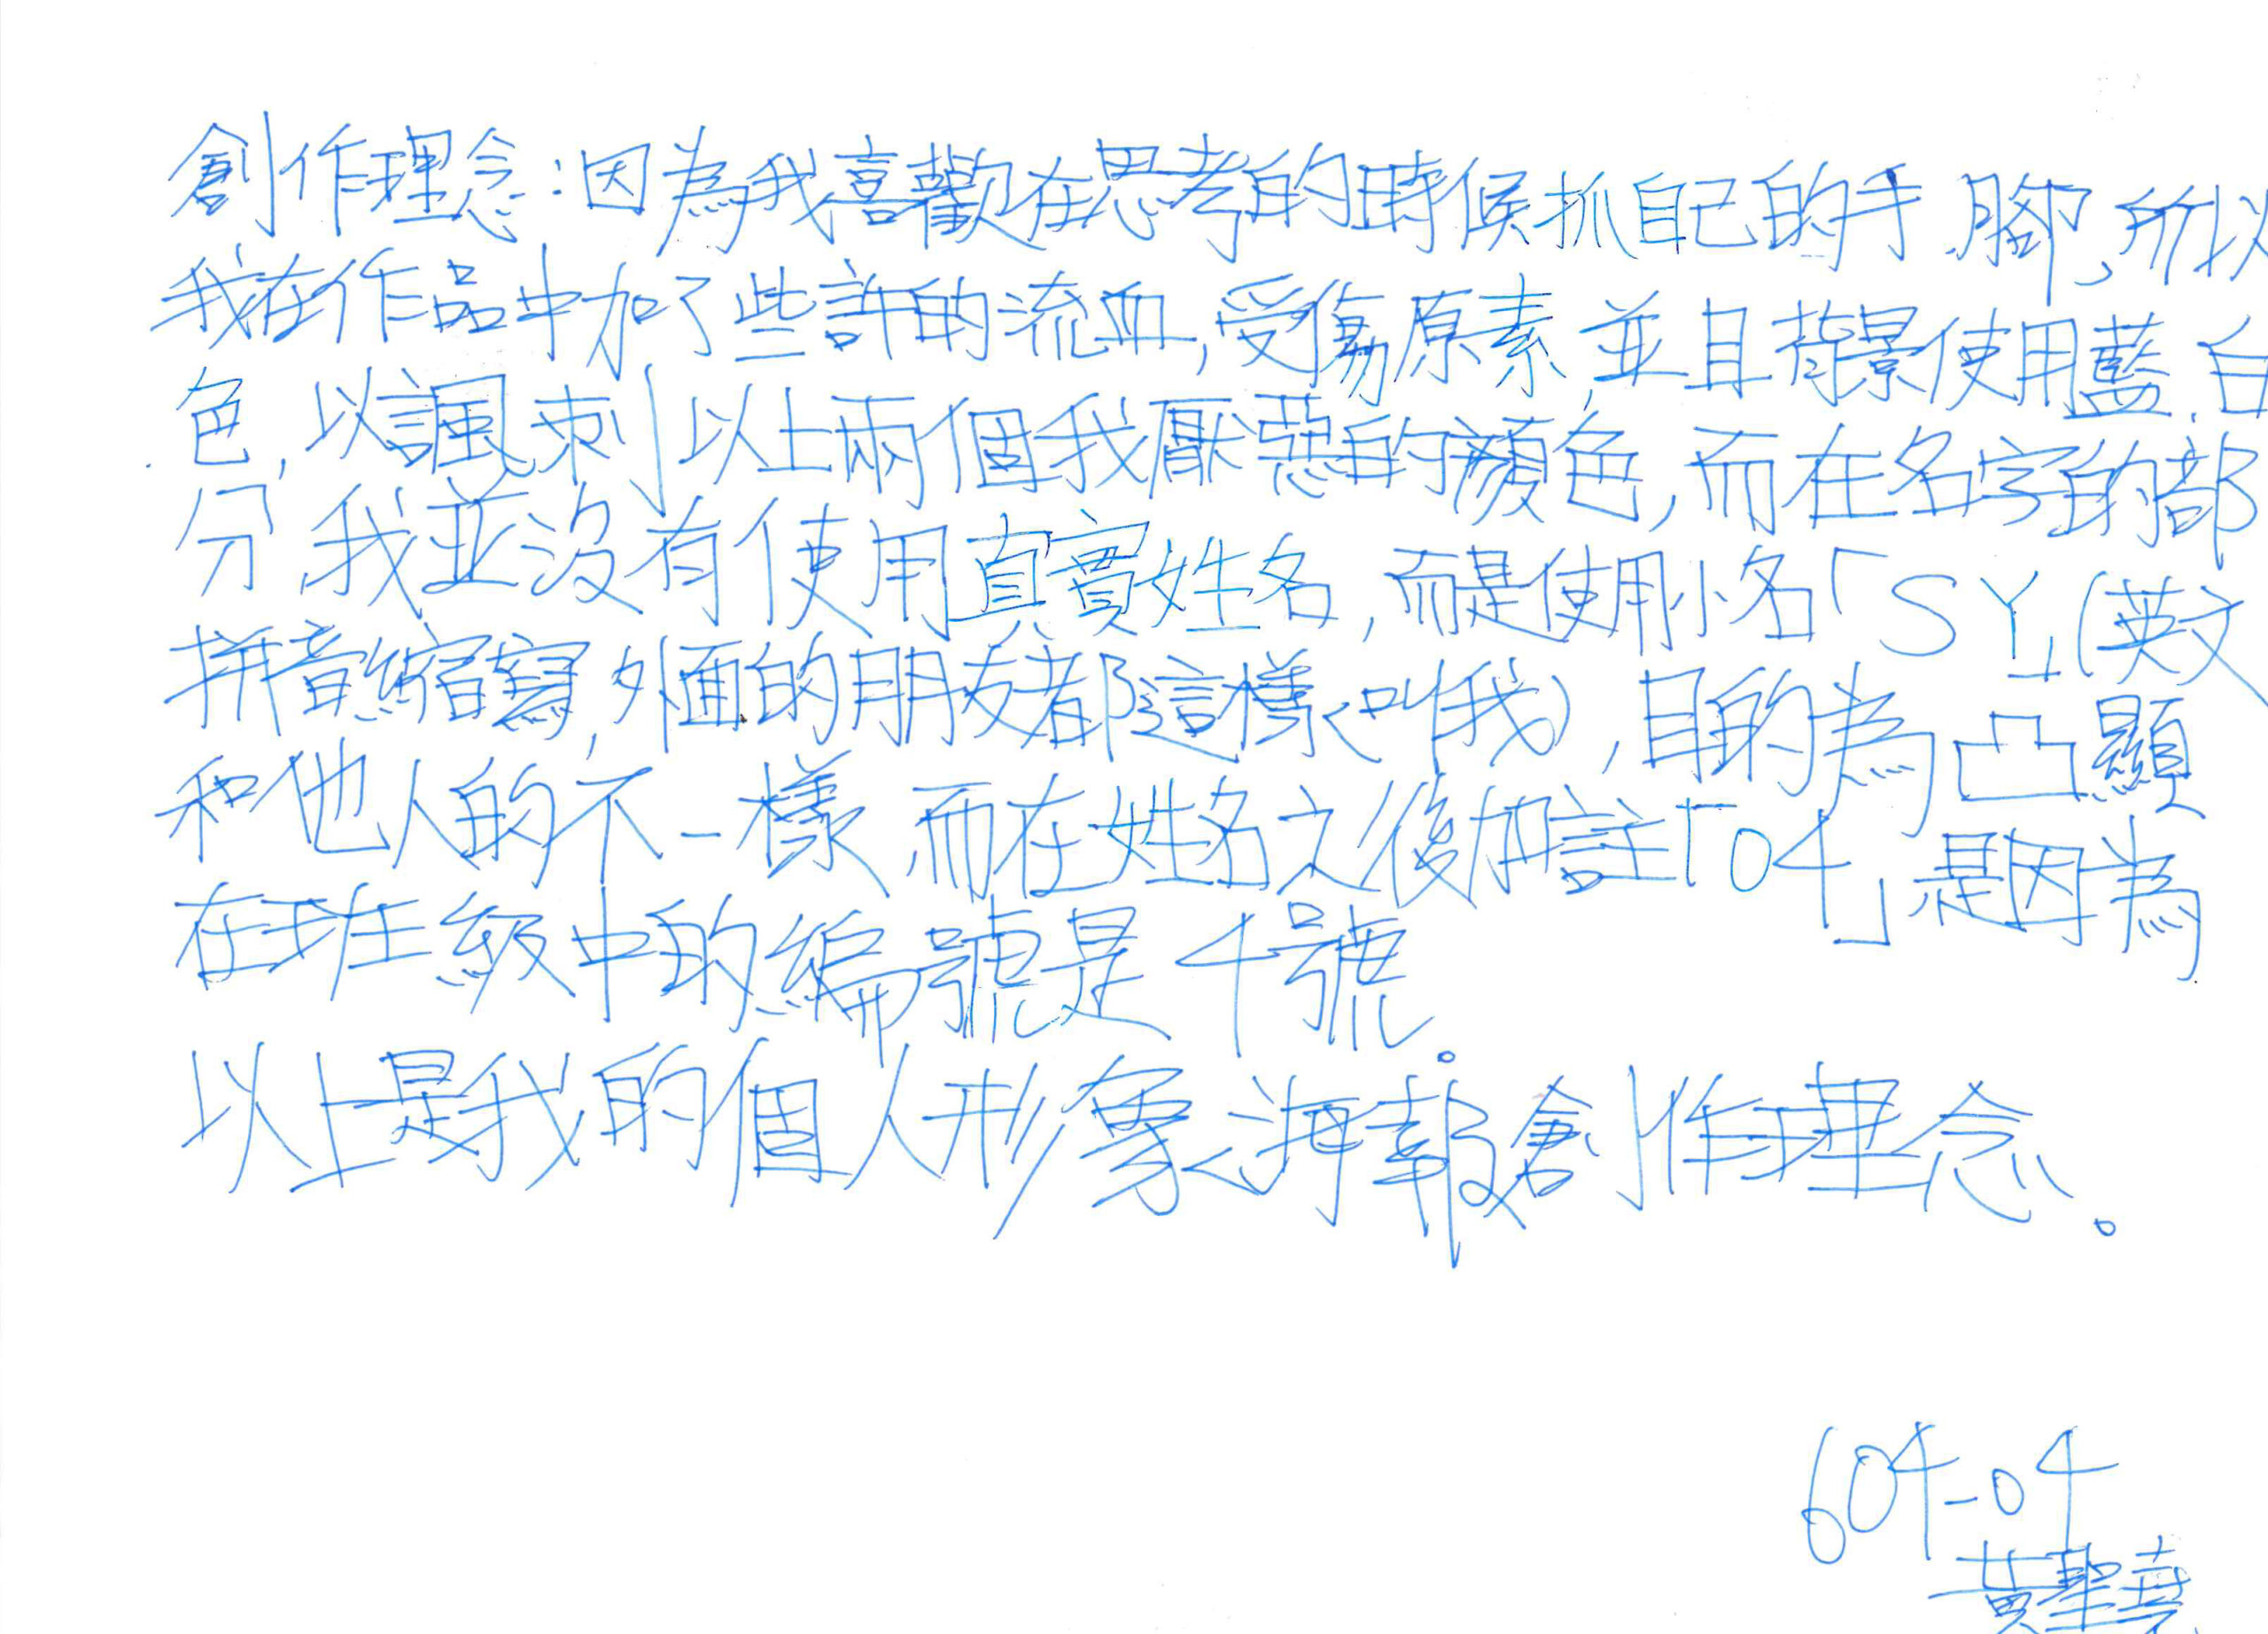 創作理念:因為我喜歡在思考的時候抓自己的手、腳,所以
我在作品中加了些許的流血,受傷原素,並且背景使用藍、白
色,以諷刺以上兩個我厭惡的顏色,而在名字的部
分,我並沒有使用真實姓名,而是使用小名「SY」(英文
拼音縮寫,外面的朋友都這樣叫我),目的為凸顯
和他人的不一樣,而在姓名之後加註「04」是因為
在班級中的編號是4號。
以上是我的個人形象海報創作理念。
604-04
黃聖堯